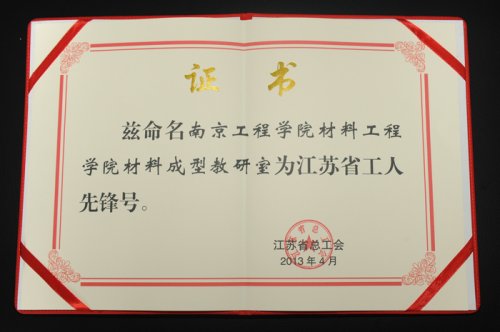 证书
兹命名南京工程学院材料工程
学院材料成型教研室为江苏省工人
先锋号。
江苏省总工会
2013年4月